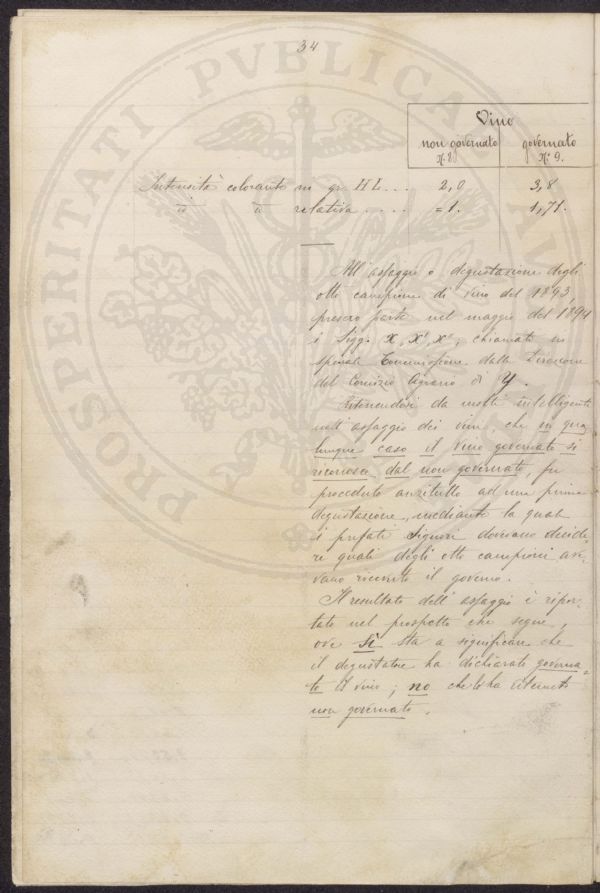 34
Vino
non governato governato
N. 8 N.° 9.
Intensità colorante in gr. HL... 2,0 3,8
id id relativa.... =1. 1,71.
All'assaggio o degustazione degli
otto campioni di vino del 1893,
presero parte nel maggio del 1894
i Sigg. X, X', X'', chiamati in
speciale Commissione dalla Direzione
del Comizio Agrario di Y.
Ritenendosi da molti intelligenti
nell'assaggio dei vini, che in qua
lunque caso il vino governato si
riconosce dal non governato, fu
proceduto anzitutto ad una prima
degustazione, mediante la quale
i prefati Signori dovevano decide
re quali degli otto campioni ave
vano ricevuto il governo.
Il resultato dell'assaggio è ripor
tato nel prospetto che segue,
ove Sì sta a significare che
il degustatore ha dichiarato governa=
to il vino; no che lo ha ritenuto
non governato.
PROSPERITATI PVBLICAE